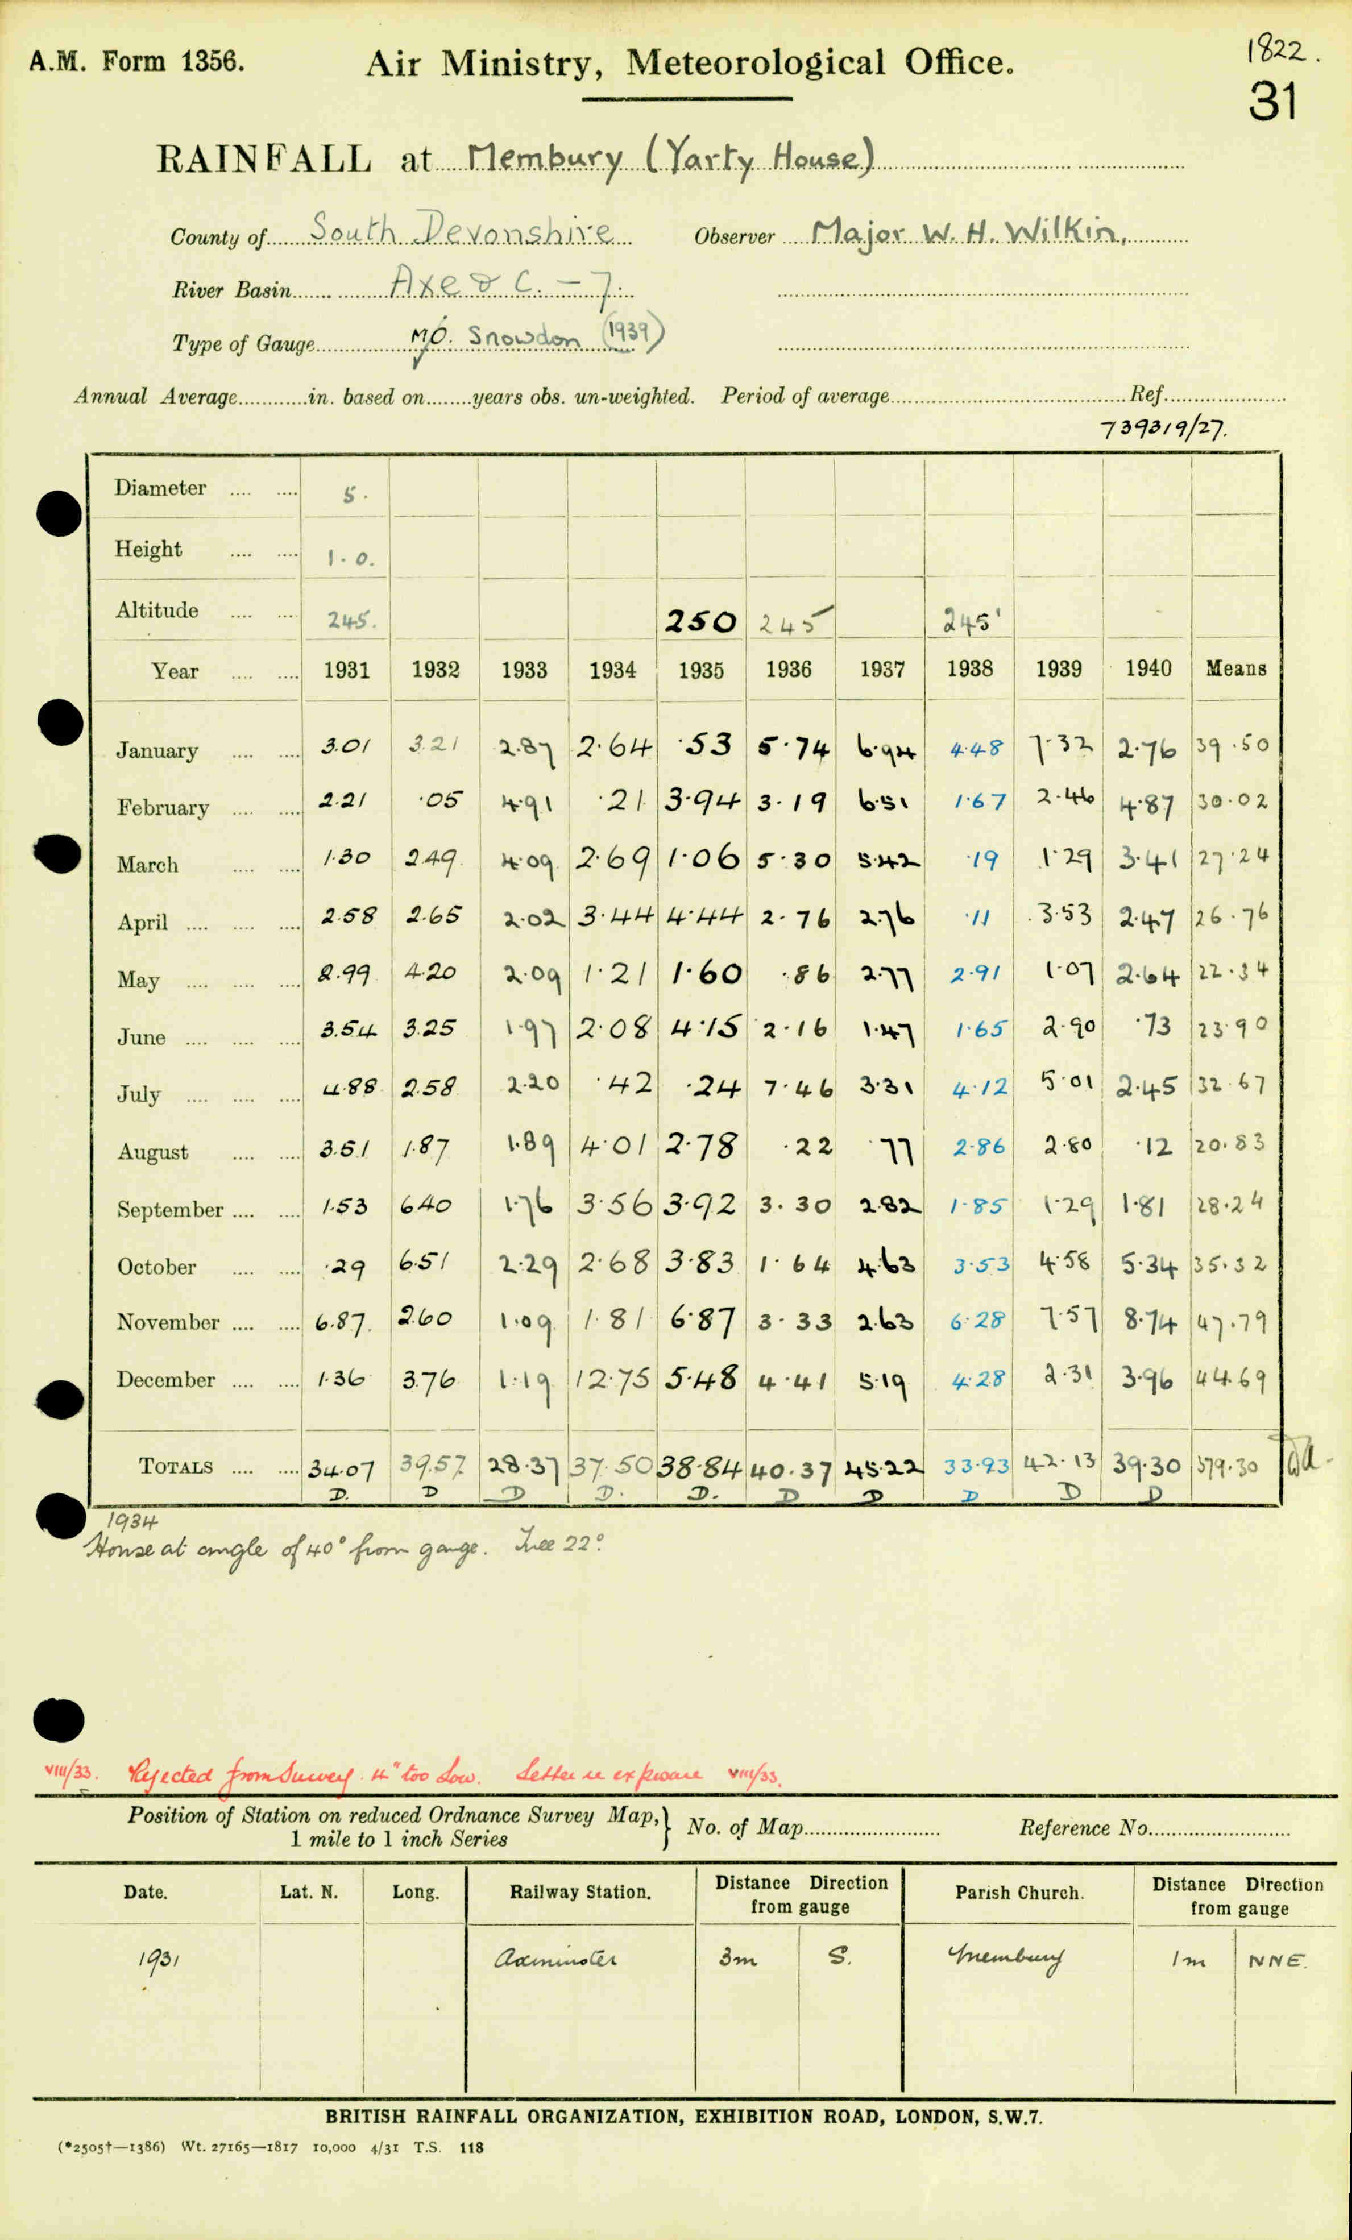 A.M. Form 1356. Air Ministry, Meteorological Office. 1822.
31
RAINFALL at Membury (Yarty House)
County of South Devonshire Observer Major W. H. Wilkin.
River Basin Axe & C. - 7.
Type of Gauge MO. Snowdon (1939)
Annual Average in. based on years obs. un-weighted. Period of average Ref.
739319/27.
Diameter 5.
Height 1.0.
Altitude 245. 250 245 245'
Year 1931 1932 1933 1934 1935 1936 1937 1938 1939 1940 Means
January 3.01 3.21 2.87 2.64 .53 5.74 6.94 4.48 7.32 2.76 39.50
February 2.21 .05 4.91 .21 3.94 3.19 6.51 1.67 2.46 4.87 30.02
March 1.30 2.49 4.09 2.69 1.06 5.30 5.42 .19 1.29 3.41 27.24
April 2.58 2.65 2.02 3.44 4.44 2.76 2.76 .11 3.53 2.47 26.76
May 2.99 4.20 2.09 1.21 1.60 .86 2.77 2.91 1.07 2.64 22.34
June 3.54 3.25 1.97 2.08 4.15 2.16 1.47 1.65 2.90 .73 23.90
July 4.88 2.58 2.20 .42 .24 7.46 3.31 4.12 5.01 2.45 32.67
August 3.51 1.87 1.89 4.01 2.78 .22 .77 2.86 2.80 .12 20.83
September 1.53 6.40 1.76 3.56 3.92 3.30 2.82 1.85 1.29 1.81 28.24
October .29 6.51 2.29 2.68 3.83 1.64 4.63 3.53 4.58 5.34 35.32
November 6.87 2.60 1.09 1.81 6.87 3.33 2.63 6.28 7.57 8.74 47.79
December 1.36 3.76 1.19 12.75 5.48 4.41 5.19 4.28 2.31 3.96 44.69
TOTALS 34.07 39.57 28.37 37.50 38.84 40.37 45.22 33.93 42.13 39.30 379.30
D. D D D. D. D D D D D
1934
House at angle of 40° from gauge. Tree 22°.
VIII/33. Rejected from Survey. 4" too Low. Letter re exposure VIII/33.
Position of Station on reduced Ordnance Survey Map, } No. of Map Reference No.
1 mile to 1 inch Series
Date. Lat. N. Long. Railway Station. Distance Direction from gauge Parish Church. Distance Direction from gauge
1931 Axminster 3m S. Membury 1m NNE.
BRITISH RAINFALL ORGANIZATION, EXHIBITION ROAD, LONDON, S.W.7.
(*2505†—1386) Wt. 27165—1817 10,000 4/31 T.S. 118